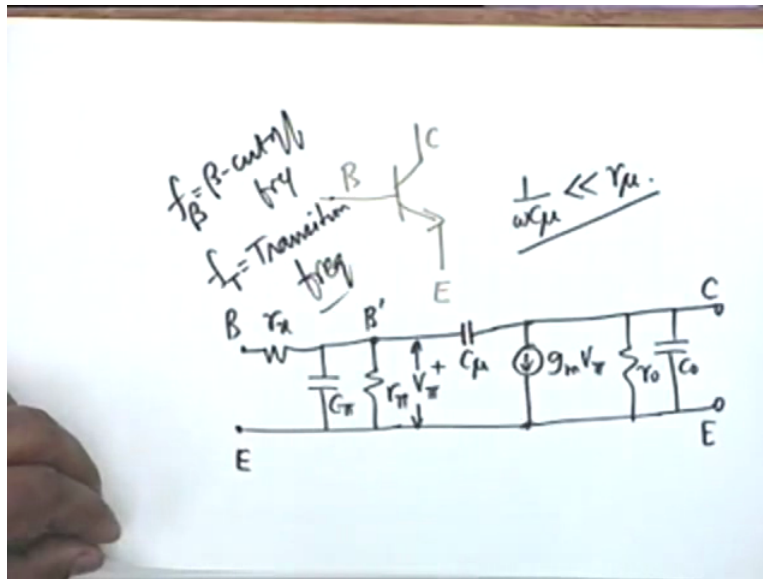 f_β = β-cutoff
frq
f_T = Transition
freq
B
C
E
1/ωCμ << rμ.
B
r_x
B'
Cμ
C
Cπ
rπ
Vπ
+
g_m Vπ
r_o
C_o
E
E